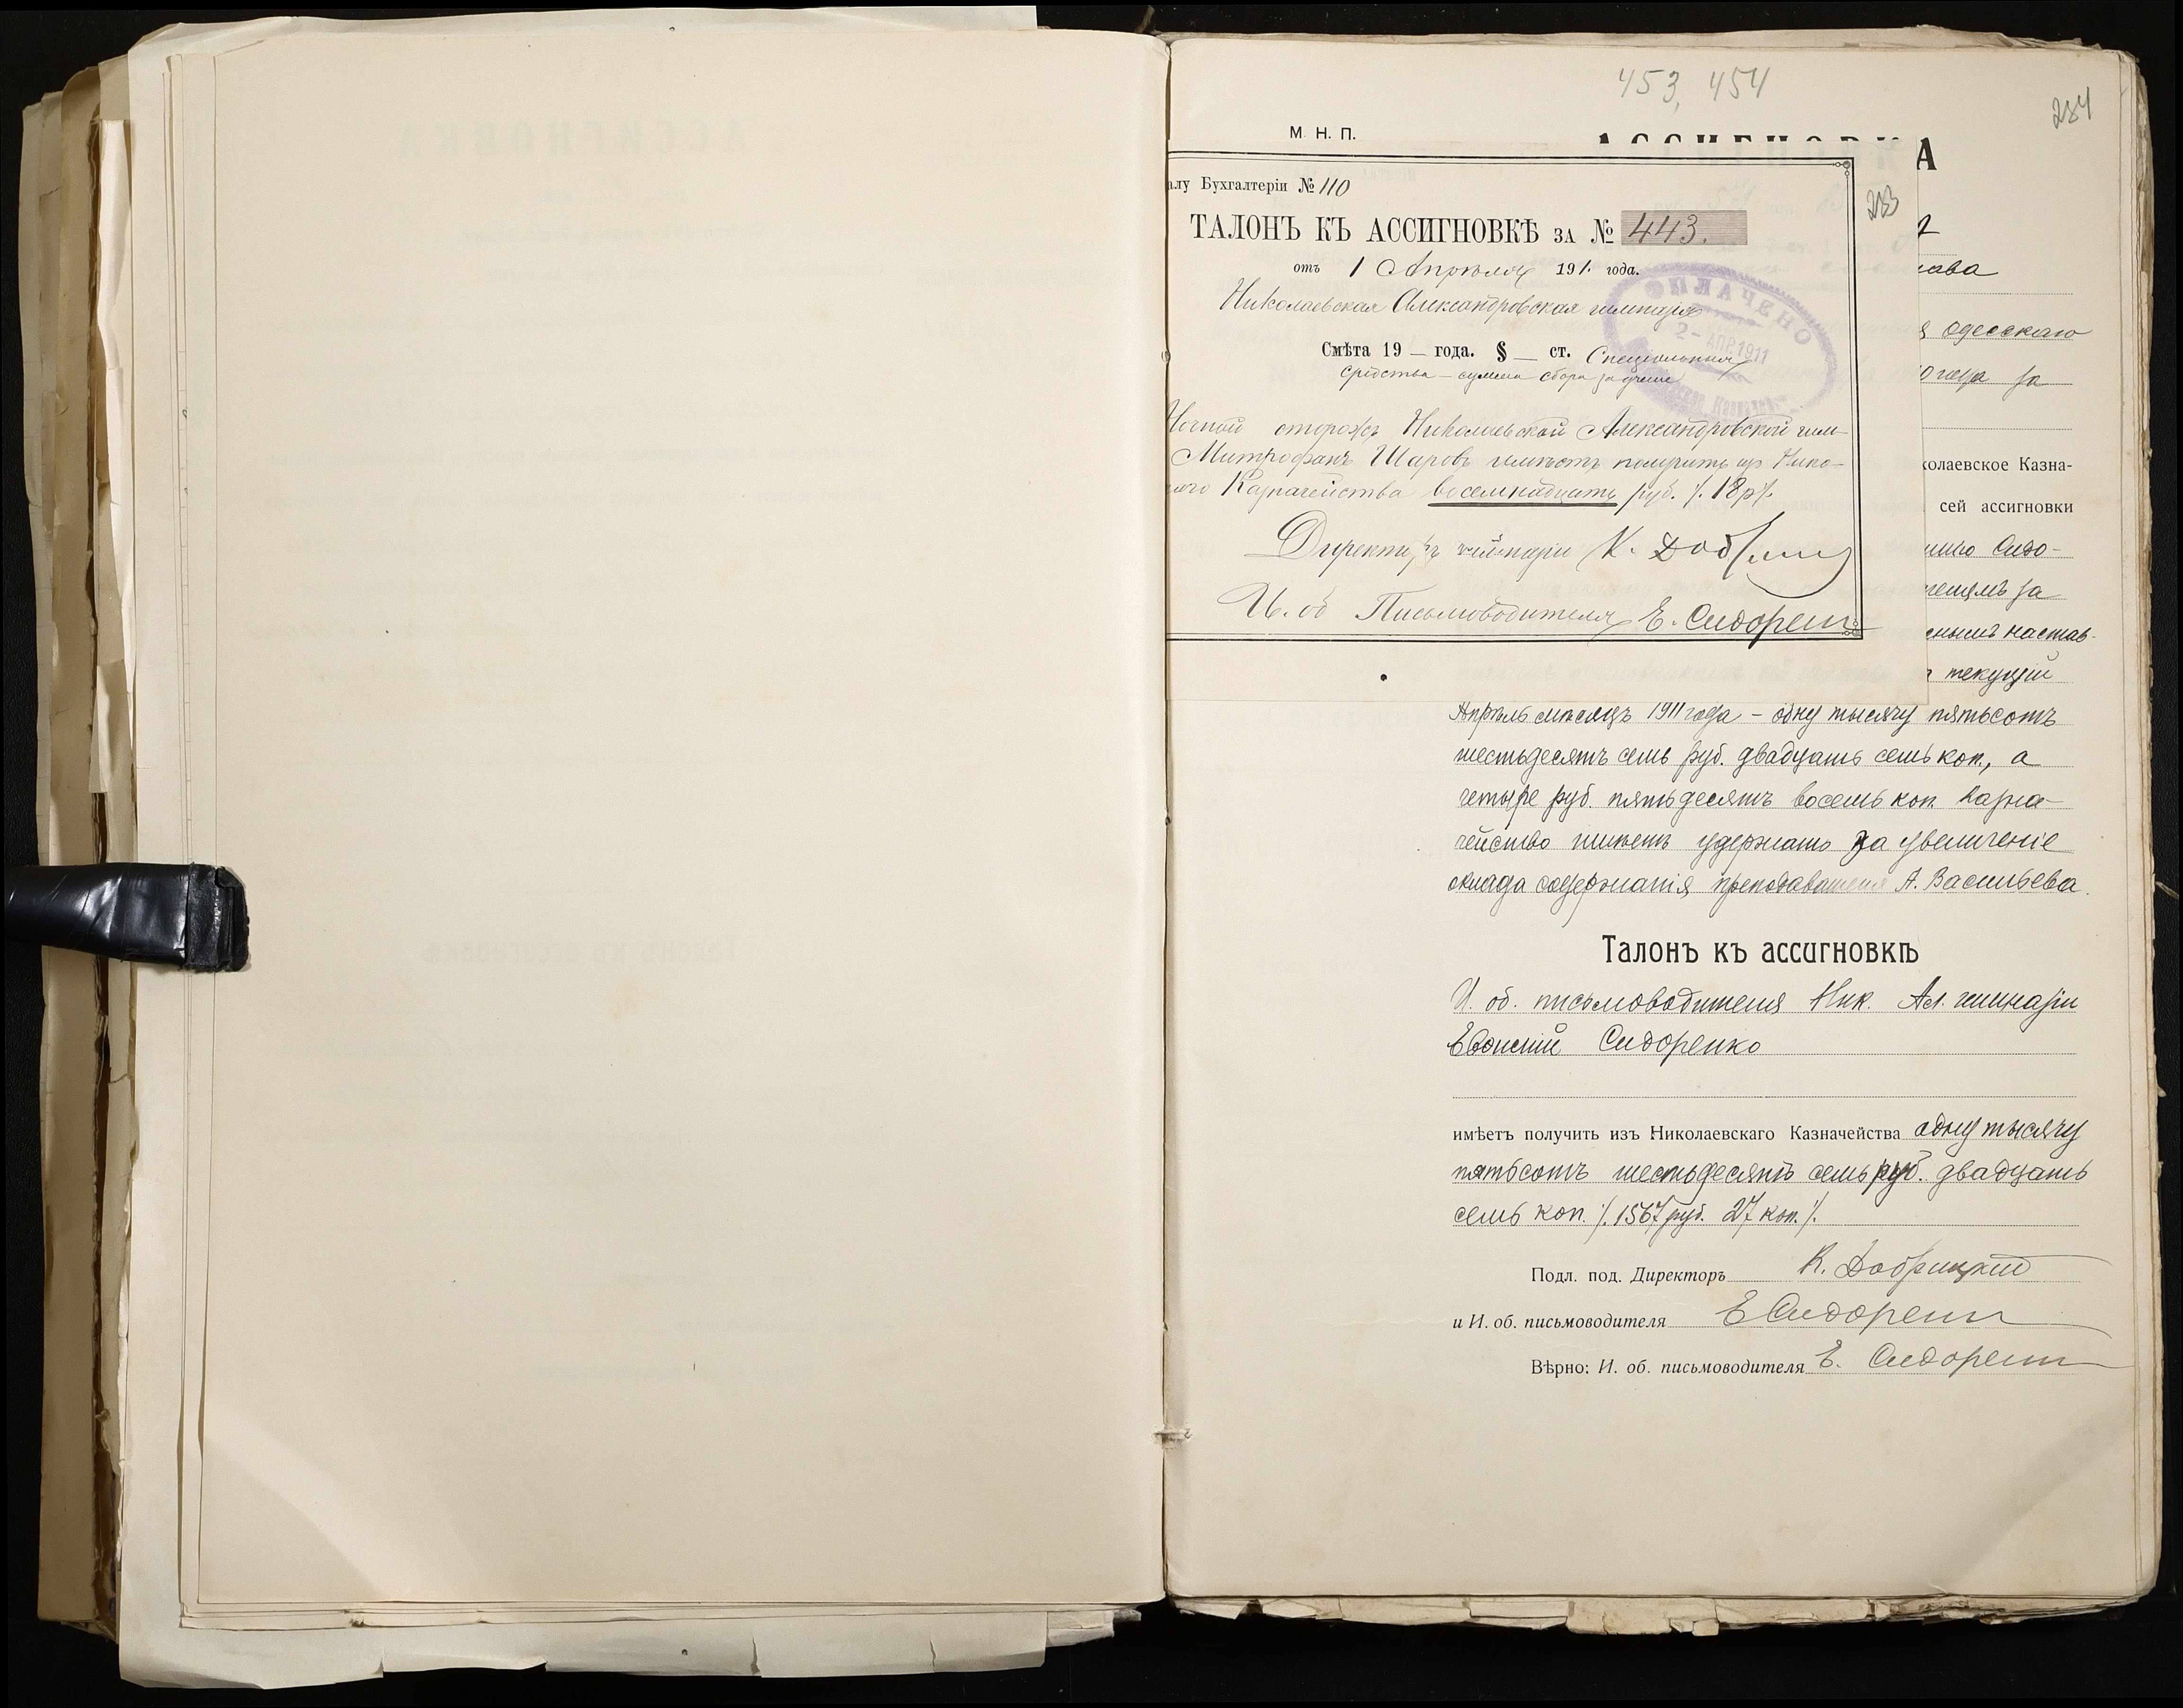 453, 454
284
М. Н. П.
АССИГНОВКА
алу Бухгалтеріи № 110
283
ТАЛОНЪ КЪ АССИГНОВКѢ ЗА № 443.
отъ 1 Апрѣля 191 года.
Николаевская Александровская гимназія
Смѣта 19 — года. § — ст. Спеціальныя
средства – сумма сбора за ученіе
ОПЛАЧЕНО
2 – АПР. 1911
Ночной сторожъ Николаевской Александровской гим-
Митрофанъ Шаровъ имѣетъ получить изъ Нико-
Казначейства восемнадцать руб. /. 18 р /.
Директоръ гимназіи К. Доб
И. об Письмоводителя Е. Сидорен
я Одесскаго
года за
колаевское Казна-
сей ассигновки
Сидо-
за
настав-
текущій
Апрѣль мѣсяцъ 1911 года – одну тысячу пятьсотъ
шестьдесятъ семь руб. двадцать семь коп., а
четыре руб. пятьдесятъ восемь коп. Казна-
чейство имѣетъ удержать за увеличеніе
оклада содержанія преподавателя А. Васильева.
Талонъ къ ассигновкѣ
И. об. письмоводителя Ник. Ал. гимназіи
Сидоренко
имѣетъ получить изъ Николаевскаго Казначейства одну тысячу
пятьсотъ шестьдесятъ семь руб. двадцать
семь коп. /. 1567 руб. 27 коп. /.
Подл. под. Директоръ К. Добрицкій
и И. об. письмоводителя Е Сидорен
Вѣрно: И. об. письмоводителя Е. Сидорен